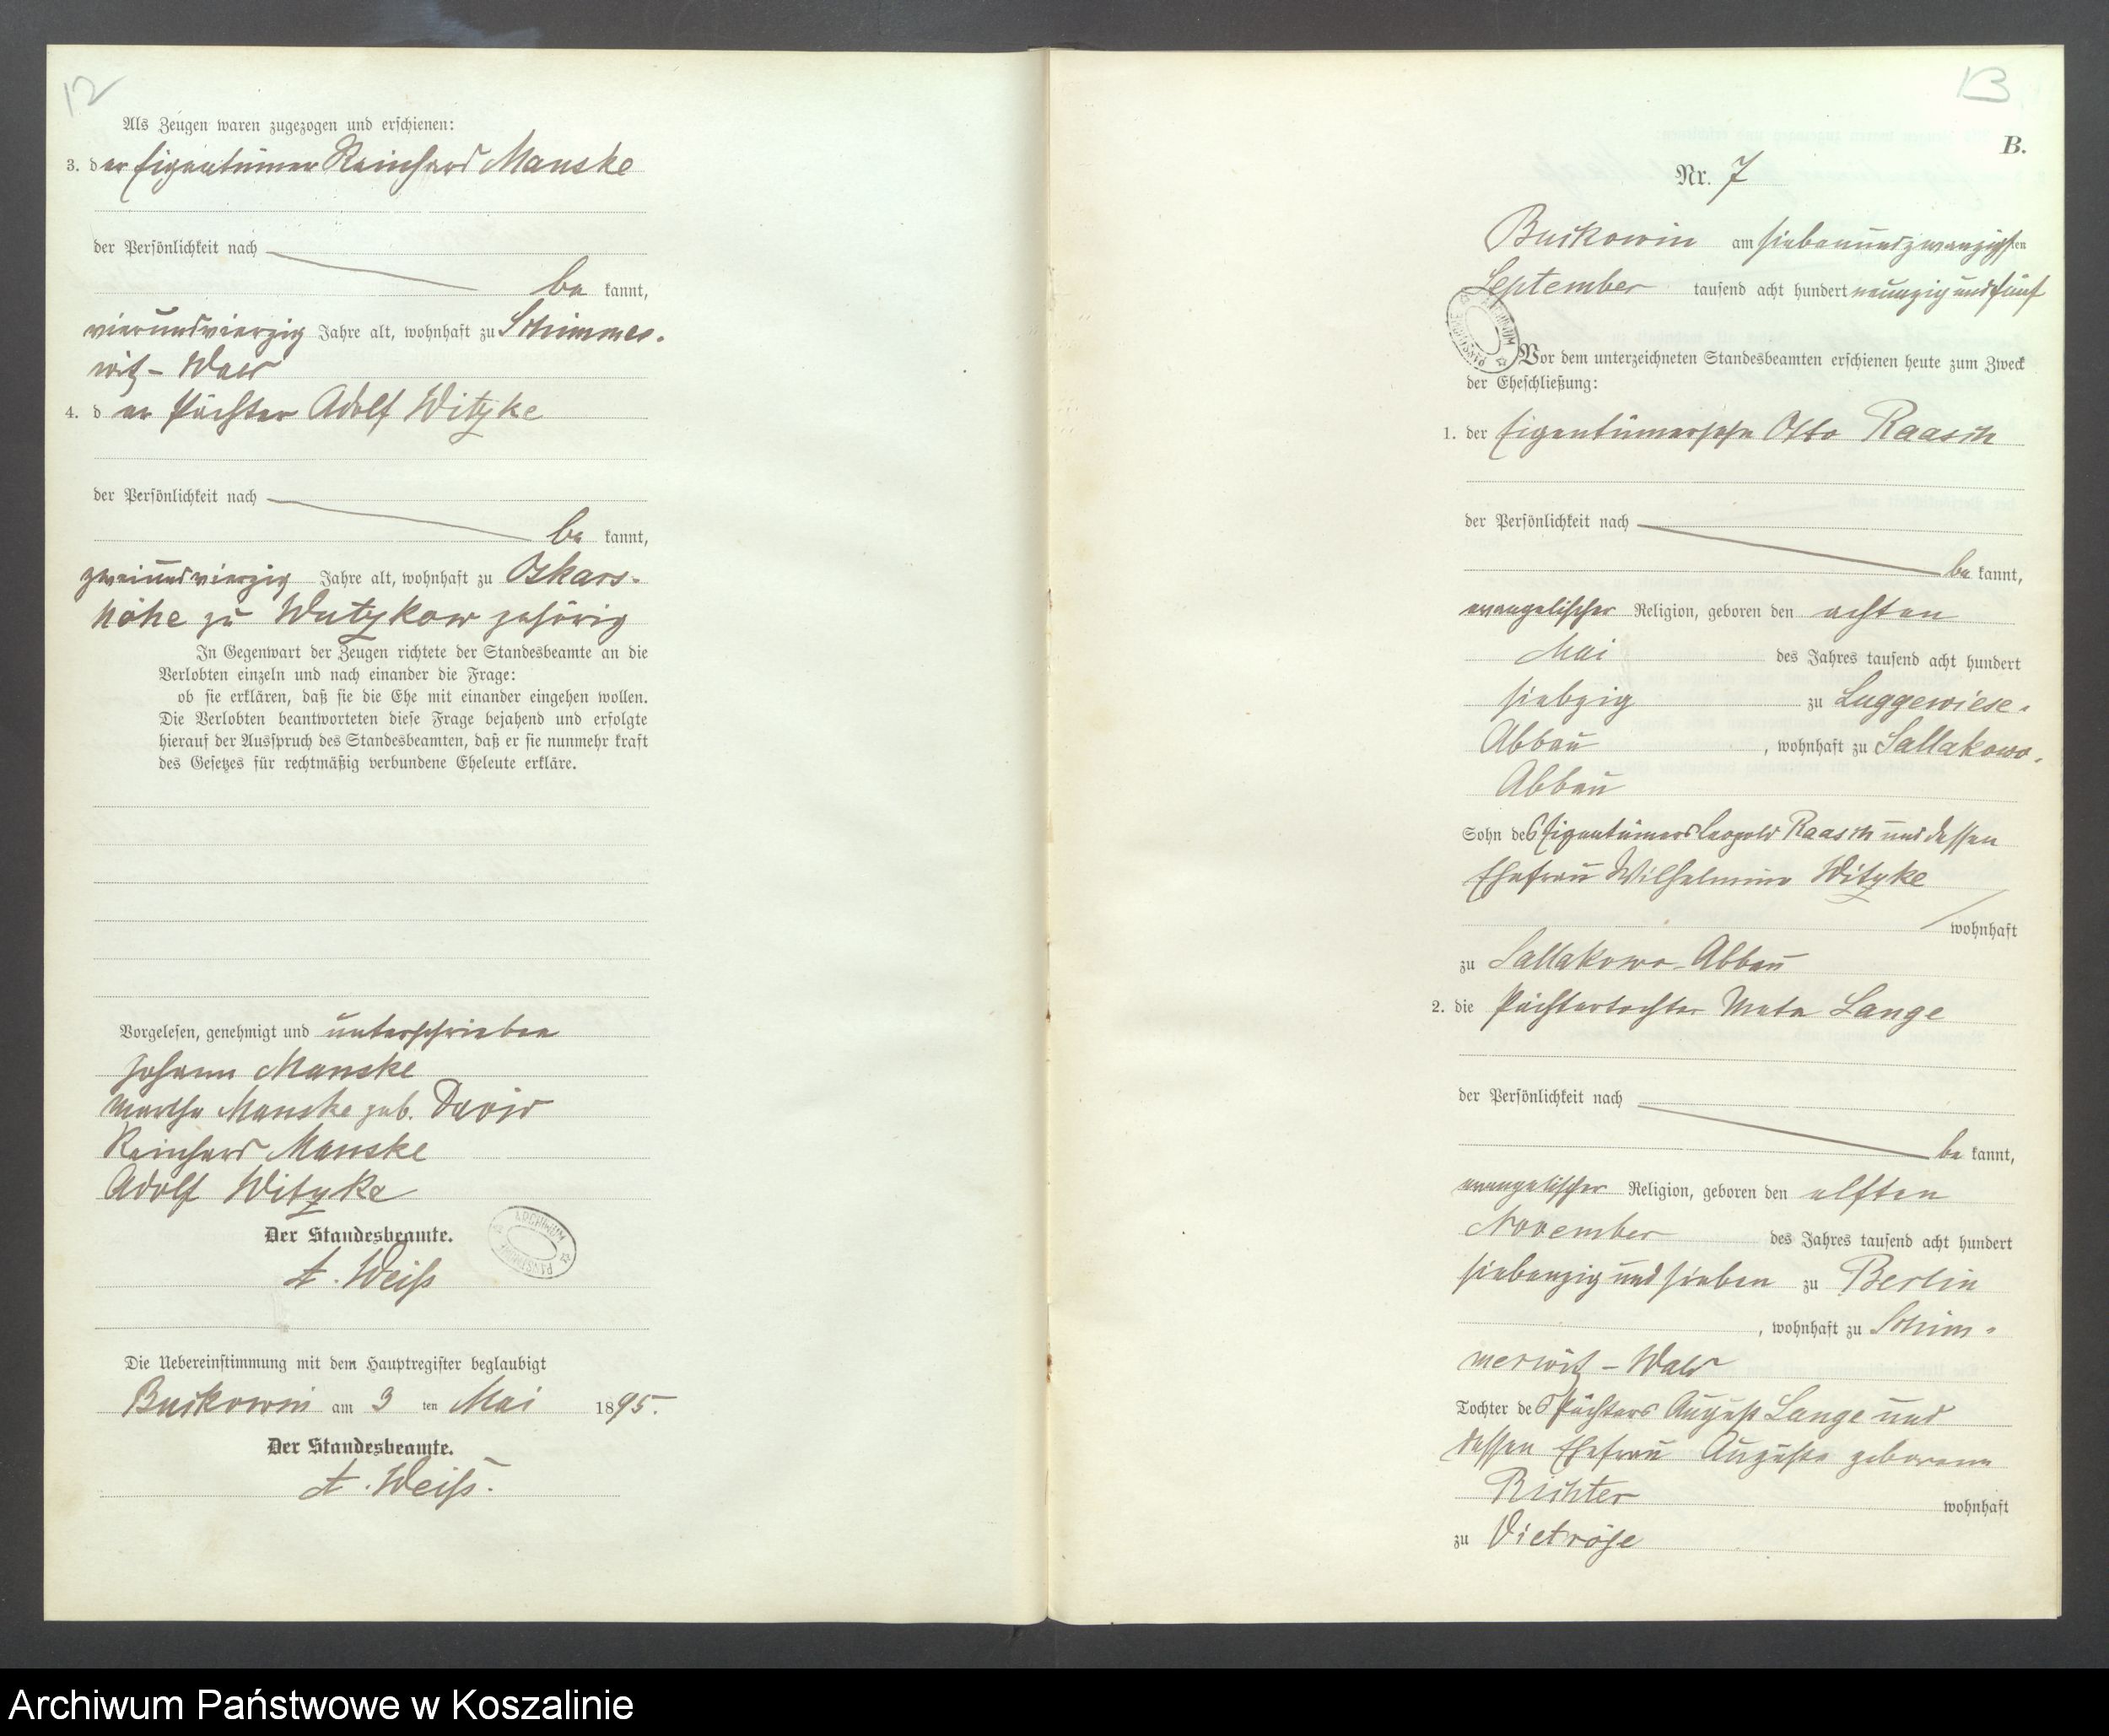 12
Als Zeugen waren zugezogen und erschienen:
3. der Eigentümer Reinhard Manske
der Persönlichkeit nach
be kannt,
vierundvierzig Jahre alt, wohnhaft zu Schimmer-
witz - Wald
4. der Pächter Adolf Witzke
der Persönlichkeit nach
be kannt,
zweiundvierzig Jahre alt, wohnhaft zu Oskars-
höhe zu Wutzkow gehörig
In Gegenwart der Zeugen richtete der Standesbeamte an die
Verlobten einzeln und nach einander die Frage:
ob sie erklären, daß sie die Ehe mit einander eingehen wollen.
Die Verlobten beantworteten diese Frage bejahend und erfolgte
hierauf der Ausspruch des Standesbeamten, daß er sie nunmehr kraft
des Gesetzes für rechtmäßig verbundene Eheleute erkläre.
Vorgelesen, genehmigt und unterschrieben
Johann Manske
Martha Manske geb. David
Reinhard Manske
Adolf Witzke
Der Standesbeamte.
A. Weiß
ARCHIWUM PAŃSTWOWE
Die Uebereinstimmung mit dem Hauptregister beglaubigt
Buckowin am 3 ten Mai 1895.
Der Standesbeamte.
A. Weiß.
13
B.
Nr. 7
Buckowin am siebenundzwanzigsten
September tausend acht hundert neunzig und fünf
ARCHIWUM PAŃSTWOWE
Vor dem unterzeichneten Standesbeamten erschienen heute zum Zweck
der Eheschließung:
1. der Eigentümersohn Otto Raasch
der Persönlichkeit nach
be kannt,
evangelischer Religion, geboren den achten
Mai des Jahres tausend acht hundert
siebzig zu Luggewiese-
Abbau, wohnhaft zu Sallakowo-
Abbau
Sohn des Eigentümers Leopold Raasch und dessen
Ehefrau Wilhelmine Witzke
wohnhaft
zu Sallakowo-Abbau
2. die Pächtertochter Meta Lange
der Persönlichkeit nach
be kannt,
evangelischer Religion, geboren den elften
November des Jahres tausend acht hundert
siebenzig und sieben zu Berlin
, wohnhaft zu Schim-
merwitz - Wald
Tochter des Pächters August Lange und
dessen Ehefrau Auguste geborene
Richter wohnhaft
zu Vietröse
Archiwum Państwowe w Koszalinie